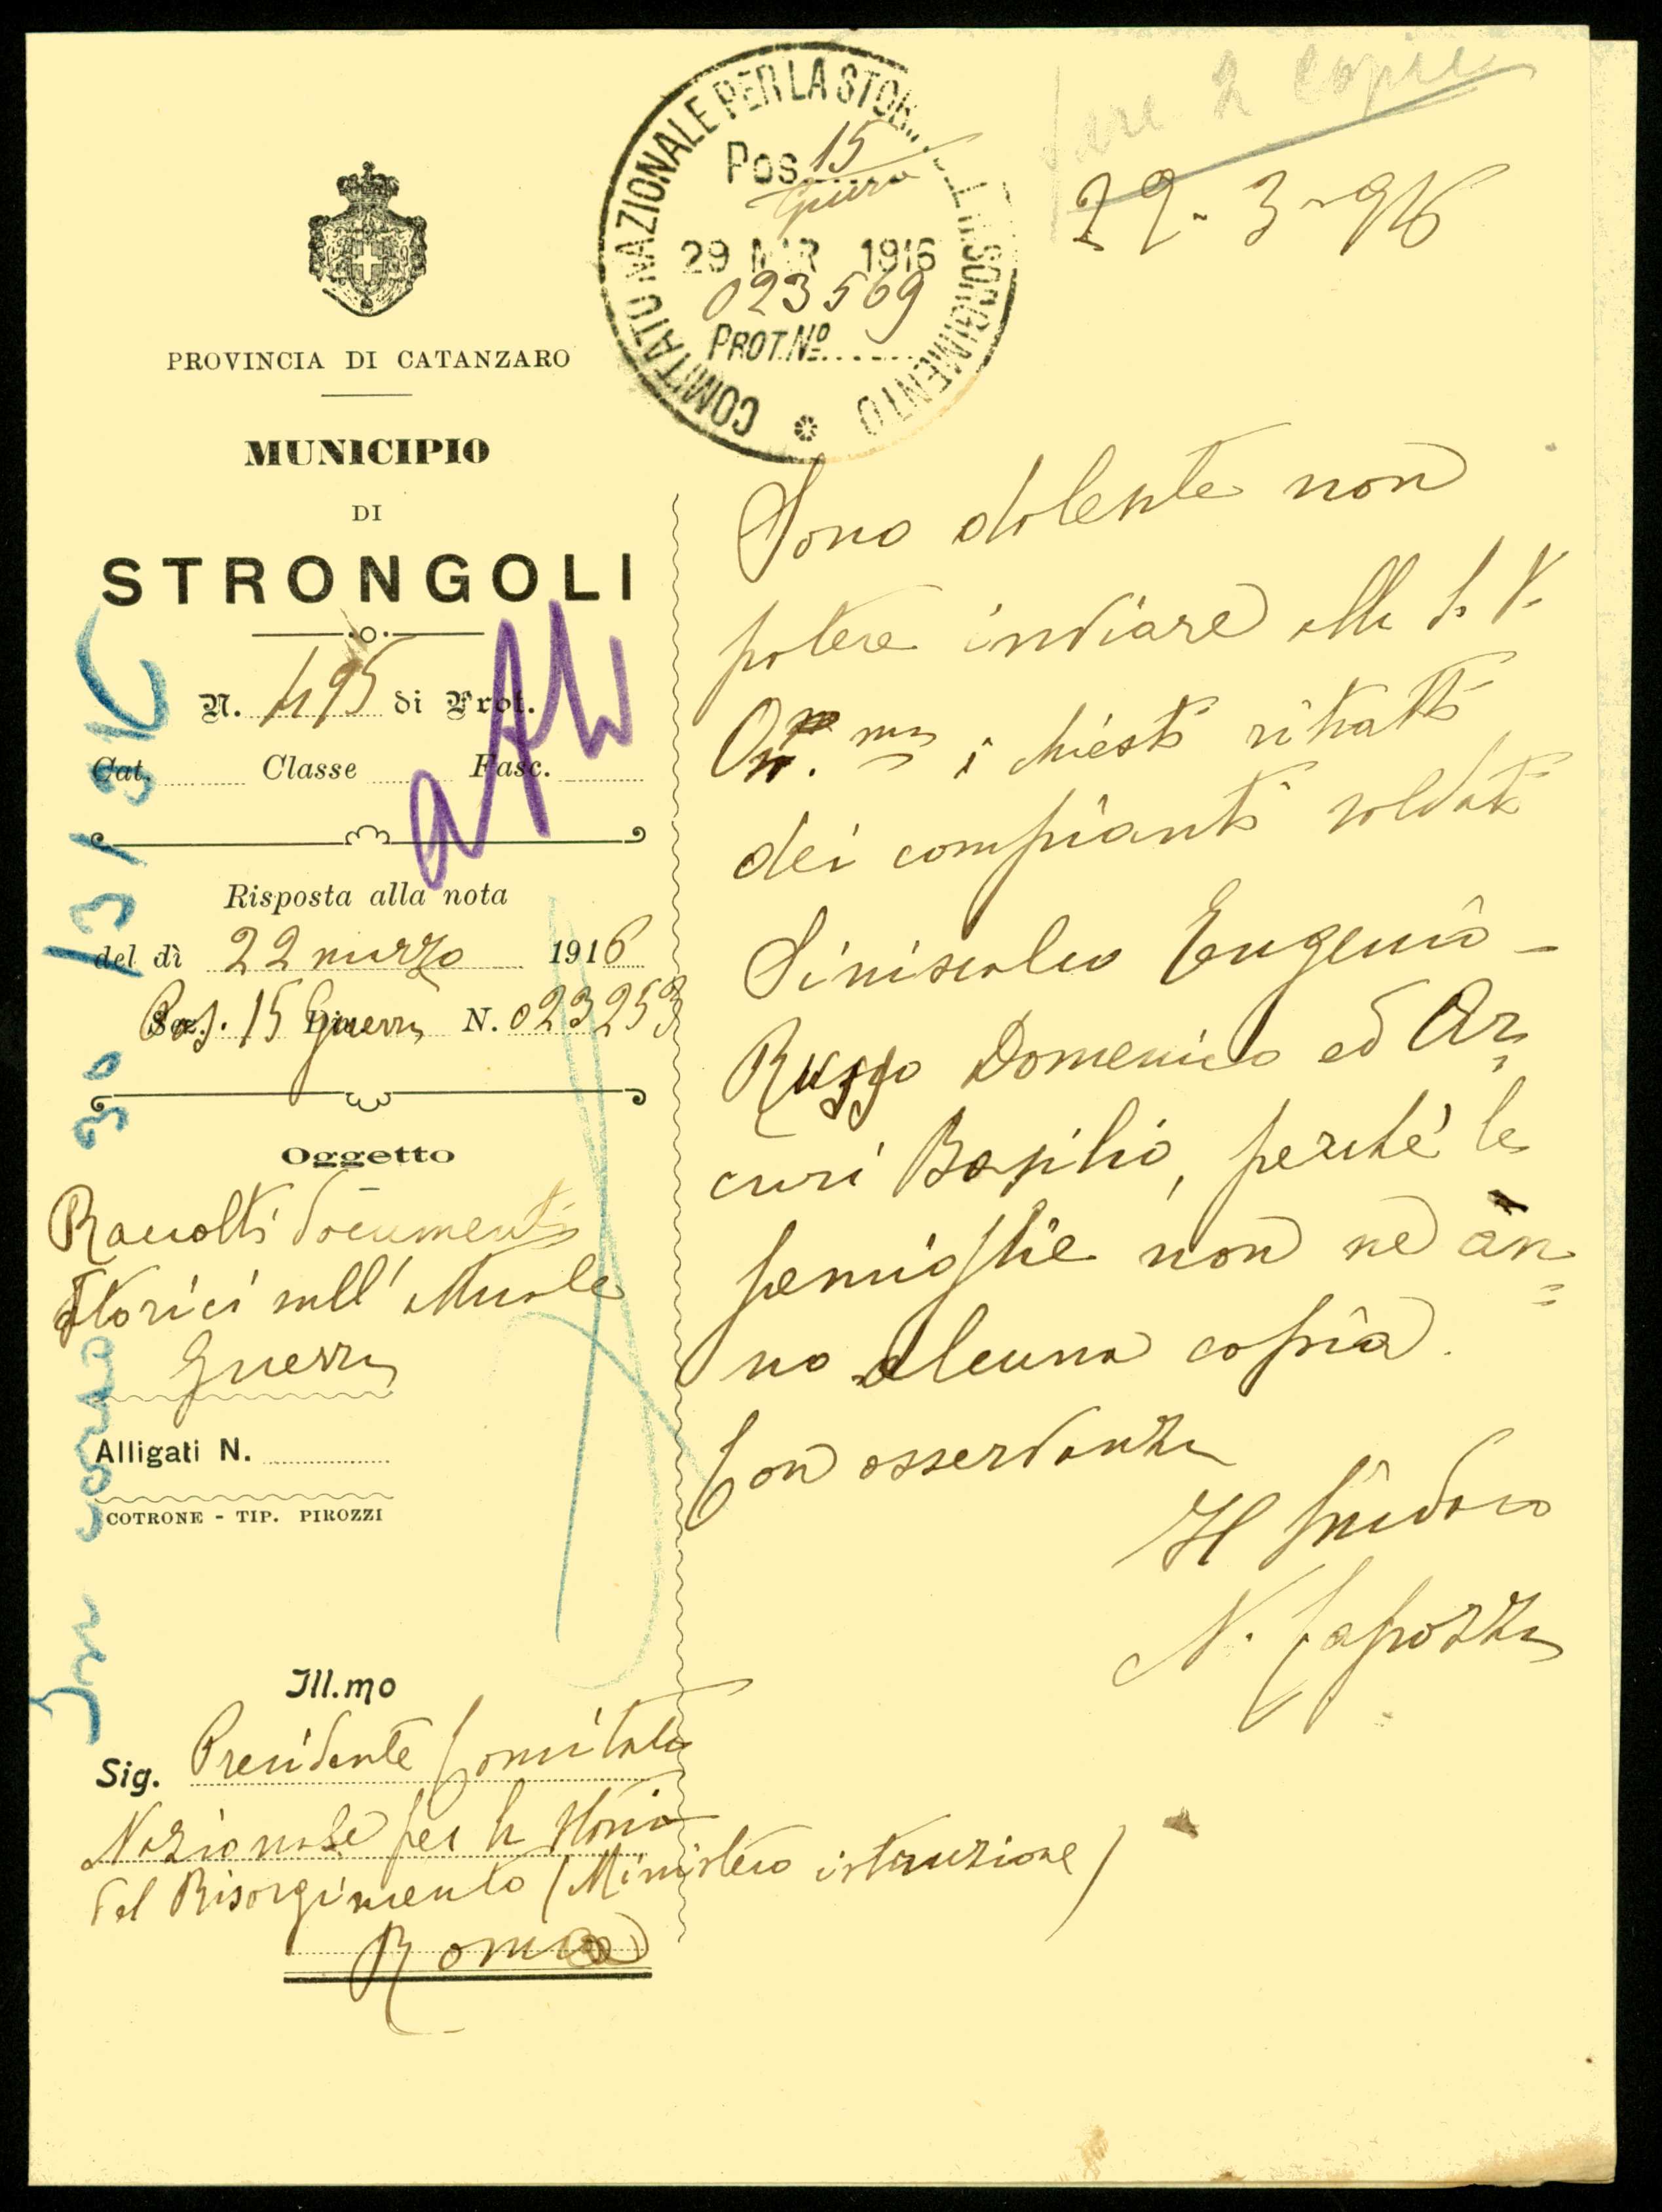 fare 2 copie
29-3-916
COMITATO NAZIONALE PER LA STOR... RISORGIMENTO
Pos. 15
Guerra
29 MAR 1916
023569
PROT. Nº
PROVINCIA DI CATANZARO
MUNICIPIO
DI
STRONGOLI
N. 495 di Prot.
Cat. Classe Fasc.
Risposta alla nota
del dì 22 marzo 1916
Pos. 15 Guerra N. 023253
Oggetto
Raccolti documenti
Storici sull'attuale
guerra
Alligati N.
COTRONE - TIP. PIROZZI
Ill.mo
Sig. Presidente Comitato
Nazionale per la Storia
del Risorgimento (Ministero istruzione)
Roma
Sono dolente non
potere inviare alla S. V.
On. ma i chiesti ritratti
dei compianti soldati
Siniscalco Eugenio -
Russo Domenico ed Ar=
curi Basilio, perchè le
famiglie non ne àn=
no alcuna copia.
Con osservanza
Il Sindaco
N. Capozza